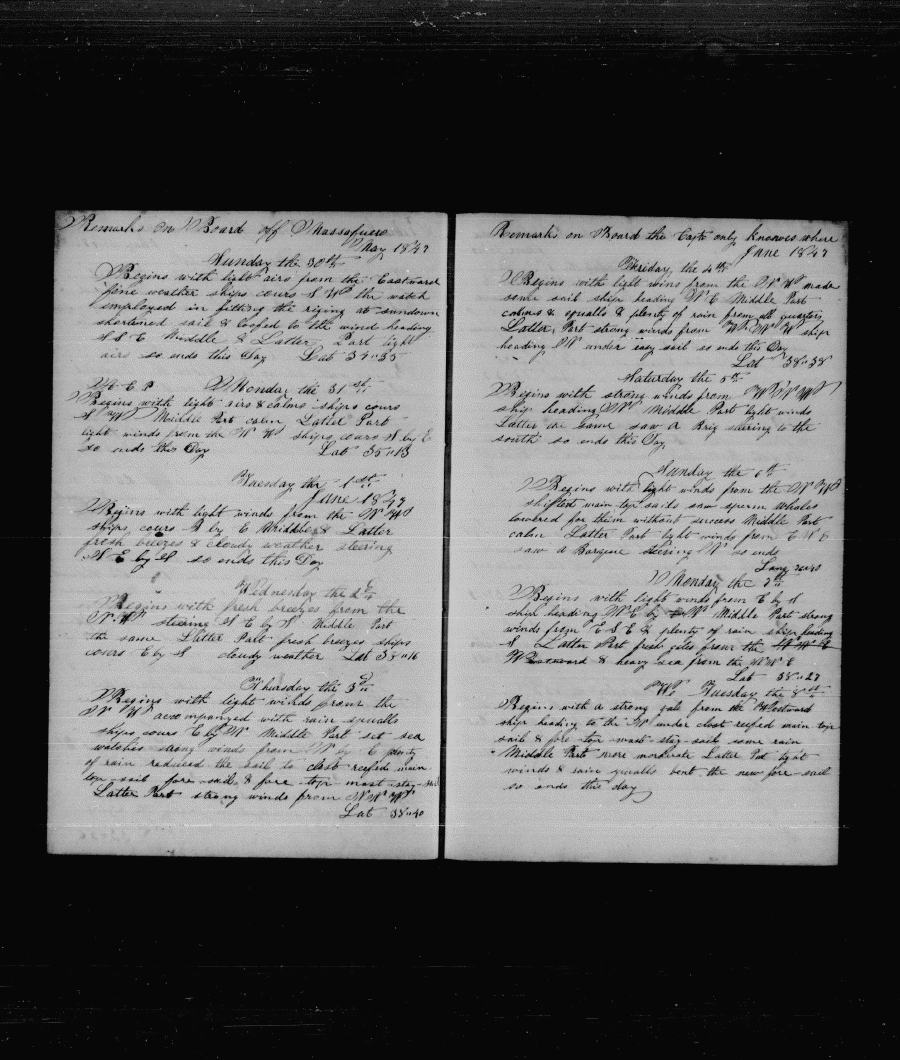 Remarks on Board off Massafuero
May 1847
Sunday the 30th
Begins with light airs from the Eastward
fine weather ships cours S W the watch
employed in fitting the riging at sundown
shortened sail & loofed to the wind heading
S S E Middle & Latter Part light
airs so ends this Day Lat 34"35
Monday the 31st
Begins with light airs & calms ships cours
S W Middle Part calm Latter Part
light winds from the W ships cours S by E
so ends this Day Lat 35"13
Tuesday the 1st
June 1847
Begins with light winds from the N W
ships cours S by E Middle & Latter
fresh breezes & cloudy weather steering
S E by S so ends this Day
Wednesday the 2d
Begins with fresh breezes from the
N W steering S E by S Middle Part
the same Latter Part fresh breezes ships
cours E by S cloudy weather Lat 38"16
Thursday the 3d
Begins with light winds from the
N W accompanyed with rain squalls
ships cours E by N Middle Part set sea
watches strong winds from N by E plenty
of rain reduced the sail to close reefed main
top sail fore sail & fore top mast stay sail
Latter Part strong winds from N W
Lat 38"40
Remarks on Board the Capt only knowes where
June 1847
Friday, the 4th
Begins with light wins from the N W made
some sail ship heading N E Middle Part
calms & squalls & plenty of rain from all quarters
Latter Part strong winds from W N W ship
heading N under easy sail so ends this Day
Lat 38"38
Saturday the 5th
Begins with strong winds from W N W
ship heading N Middle Part light winds
Latter the same saw a Brig steering to the
south so ends this Day
Sunday the 6th
Begins with light winds from the N W
shifted main top sails saw sperm whales
lowered for them without success Middle Part
calm Latter Part light winds from E N E
saw a Barque steering N so ends
Long
Monday the 7th
Begins with light winds from E by S
ship heading N E by N Middle Part strong
winds from E S E & plenty of rain ship heading
S Latter Part fresh gales from the
Westward & heavy sea from the N E
Lat 38"27
Tuesday the 8th
Begins with a strong gale from the Westward
ship heading to the N under close reefed main top
sail & fore top mast stay sail some rain
Middle Part more moderate Latter Part light
winds & rain squalls bent the new fore sail
so ends this day